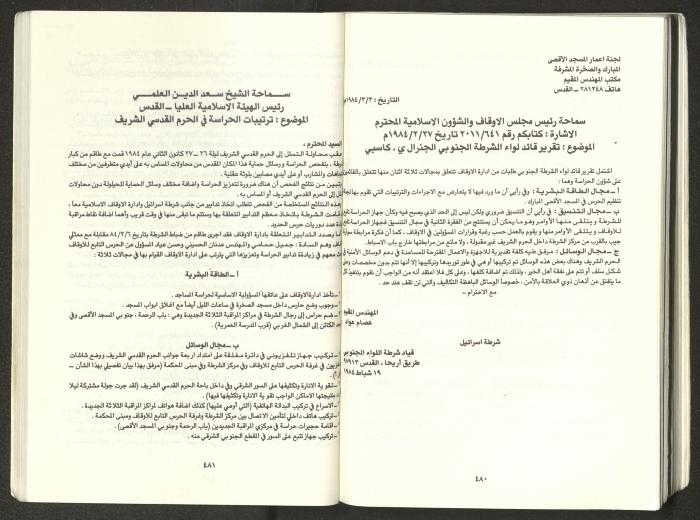 لجنة اعمار المسجد الأقصى
المبارك والصخرة المشرفة
مكتب المهندس المقيم
هاتف ٢٨١٢٤٨ ــ القدس
التاريخ : ١٩٨٤/٣/٣م
سماحة رئيس مجلس الاوقاف والشؤون الاسلامية المحترم
الاشارة : كتابكم رقم ٢٠١١/٦٤١ تاريخ ١٩٨٤/٢/٢٧م
الموضوع : تقرير قائد لواء الشرطة الجنوبي الجنرال ي . كاسبي
اشتمل تقرير قائد لواء الشرطة الجنوبي طلبات من ادارة الاوقاف تتعلق بمجالات ثلاثة اثنان منها تتعلق بالقائمين
على شؤون الحراسة وهما :
أ ــ مجال الطاقة البشرية : وفي رأيي أن ما ورد فيها لا يتعارض مع الاجراءات والترتيبات التي تقوم بها
تنظيم الحرس في المسجد الأقصى المبارك .
ب ــ مجال التنسيق : في رأيي أن التنسيق ضروري ولكن ليس إلى الحد الذي يصبح فيه وكأن جهاز الحراسة تابع
للشرطة ويتلقى منها الأوامر وهو ما يمكن أن يستنتج من الفقرة الثانية في مجال التنسيق فجهاز الحراسة تابع
للاوقاف ويتلقى الأوامر منها و يقوم بالعمل حسب رغبة وقرارات المسؤولين في الاوقاف ، كما أن فكرة مرابطة
جيب بالقرب من مركز الشرطة داخل الحرم الشريف غير مقبولة . ولا مانع من مرابطتها خارج باب الاسباط .
ج ــ مجال الوسائل : مرفق طيه كلفة تقديرية للاجهزة والاعمال المقترحة للمساعدة في دعم الوسائل الأمنية في
الحرم الشريف وهناك بعض هذه الوسائل تم تركيبها أو هي في طور توريدها وتركيبها إلا أنها تتم بدون مخصصات
شكل سلف أو تتم على نفقة أهل الخير ، ولذلك تم اضافة كلفها ، وعلى كل فلا أعتقد أنه من الواجب أن نقوم بتنفيذ كل
ما يتفتق من أذهان ذوي العلاقة بالأمن ، خصوصا الوسائل الباهظة التكاليف والتي لن تقف عند حد .
مع الاحترام ــ
المهندس المقيم
عصام عواد
شرطة اسرائيل
قياد شرطة اللواء الجنوبي
طريق أريحا ، القدس ٩٧٩١٣
١٩ شباط ١٩٨٤
٤٨٠
سـمـاحـة الشيـخ سـعـد الديـن العلمـي
رئيس الهيئة الاسلامية العليا ــ القدس
الموضوع : ترتيبات الحراسة في الحرم القدسي الشريف
السيد المحترم ،
محاولة التسلل إلى الحرم القدسي الشريف ليلة ٢٦ ــ ٢٧ كانون الثاني عام ١٩٨٤ قمت مع طاقم من كبار
بفحص الحراسة ووسائل حماية هذا المكان المقدس من محاولات المساس به على أيدي متطرفين من مختلف
والمشارب أو على أيدي مصابين بلوثة عقلية .
من نتائج الفحص أن هناك ضرورة لتعزيز الحراسة واضافة مختلف وسائل الحماية للحيلولة دون محاولات
إلى الحرم القدسي الشريف أو المساس به .
هذه النتائج المستخلصة من الفحص تتطلب اتخاذ تدابير من جانب شرطة اسرائيل وادارة الاوقاف الاسلامية معاً ،
قامت الشرطة باتخاذ معظم التدابير المتعلقة بها وستتم ما تبقى منها في وقت قريب وأهما اضافة نقاط مراقبة
عدد دوريات حرس الحدود .
بصدد التدابير المتعلقة بادارة الاوقاف فقد اجرى طاقم من ضباط الشرطة بتاريخ ٨٤/٢/٦ مقابلة مع ممثلي
وهم السادة : جميل حمامي والمهندس عدنان الحسيني وحسن عياد المسؤول عن الحرس التابع للاوقاف
معهم في زيادة تدابير الحراسة وتعزيزها التي يترتب على ادارة الاوقاف القيام بها في مجالات ثلاثة :
أ ــ الطاقة البشرية
ــ تأخذ ادارة الاوقاف على عاتقها المسؤولية الاساسية لحراسة المسجد .
ــ وجوب وضع حارس داخل مسجد الصخرة في ساعات الليل أيضاً مع اغلاق ابواب المسجد .
ــ ضم حراس إلى رجال الشرطة في مراكز المراقبة الثلاثة الجديدة وهي : باب الرحمة ، جنوبي المسجد الأقصى وفي
الكائن إلى الشمال الغربي (قرب المدرسة العمرية) .
ب ــ مجال الوسائل
ــ تركيب جهاز تلفزيوني في دائرة مغلقة على امتداد اربعة جوانب الحرم القدسي الشريف ووضع شاشات
في غرفة الحرس التابع للاوقاف وفي مركز الشرطة وفي مبنى المحكمة (مرفق بهذا بيان تفصيلي بهذا الشأن ــ
ــ تقوية الانارة وتكثيفها على السور الشرقي وفي داخل باحة الحرم القدسي الشريف (لقد جرت جولة مشتركة ليلا
بنتيجتها الاماكن الواجب تقوية الانارة وتكثيفها فيها) .
ــ الاسراع في تركيب البدالة الهاتفية (التي أوصي عليها) كذلك اضافة هواتف لمراكز المراقبة الثلاثة الجديدة .
ــ تركيب هاتف داخلي لتأمين الاتصال بين مركز الشرطة وغرفة الحرس التابع للاوقاف ومبنى المحكمة .
ــ اقامة حجيرات حراسة في مركزي المراقبة الجديدين (باب الرحمة وجنوبي المسجد الأقصى) .
ــ تركيب جهاز تتبع على السور في المقطع الجنوبي الشرقي منه .
٤٨١